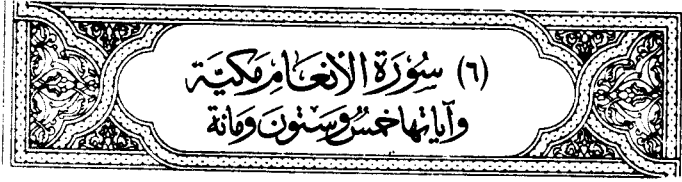 (٦) سُورَة الأنعَامِ مَكيَّة
وَآيَاتها خَمسٌ وَسِتّونَ وَمائة